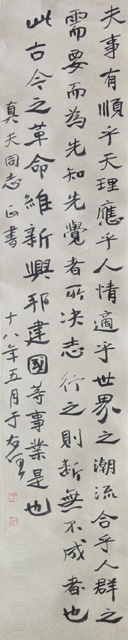 夫事有順乎天理應乎人情適乎世界之潮流合乎人群之
需要而為先知先覺者所决志行之則斷無不成者也
此古今之革命維新興邦建國等事業是也
真夫同志正書
十八年五月于右任